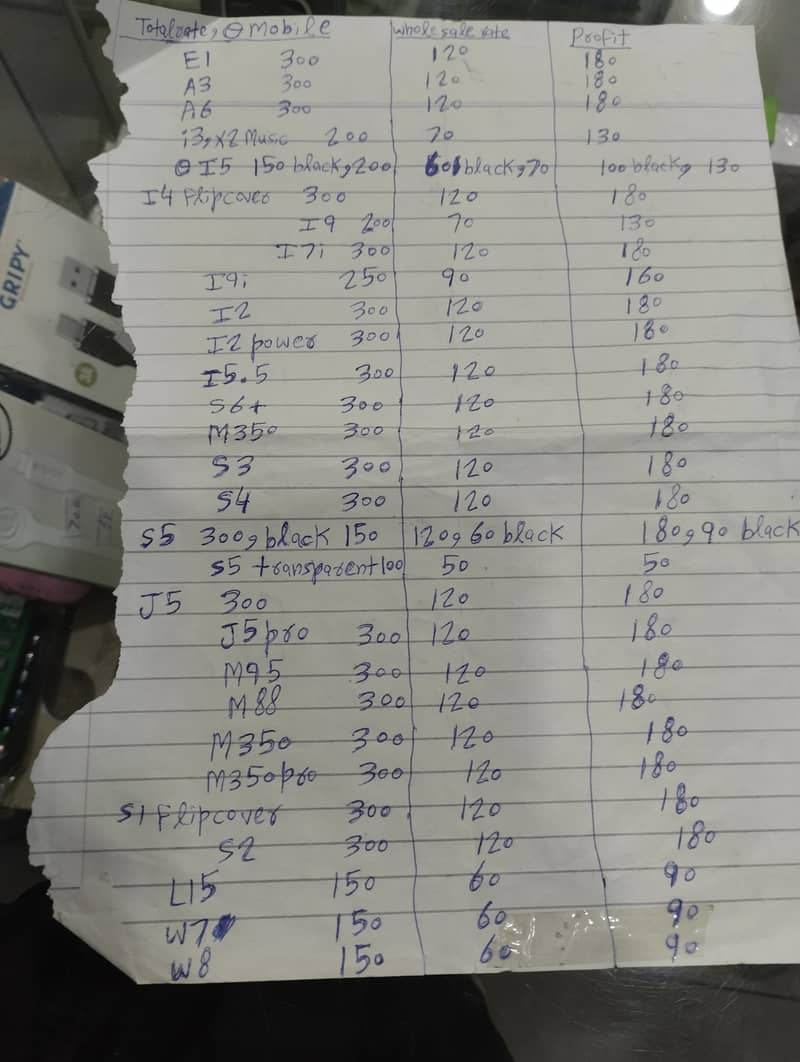 Totalrate, Qmobile wholesale rate Profit
E1 300 120 180
A3 300 120 180
A6 300 120 180
i3,x2 Music 200 70 130
I5 150 black,200 60 black,70 100 black, 130
I4 Flipcover 300 120 180
I9 200 70 130
I7i 300 120 180
I9i 250 90 160
I2 300 120 180
I2 power 300 120 180
I5.5 300 120 180
S6+ 300 120 180
M350 300 120 180
S3 300 120 180
S4 300 120 180
S5 300,black 150 120,60 black 180,90 black
S5 transparent 100 50 50
J5 300 120 180
J5pro 300 120 180
M95 300 120 180
M88 300 120 180
M350 300 120 180
M350pro 300 120 180
S1 Flipcover 300 120 180
S2 300 120 180
L15 150 60 90
W7 150 60 90
W8 150 60 90
GRIPY